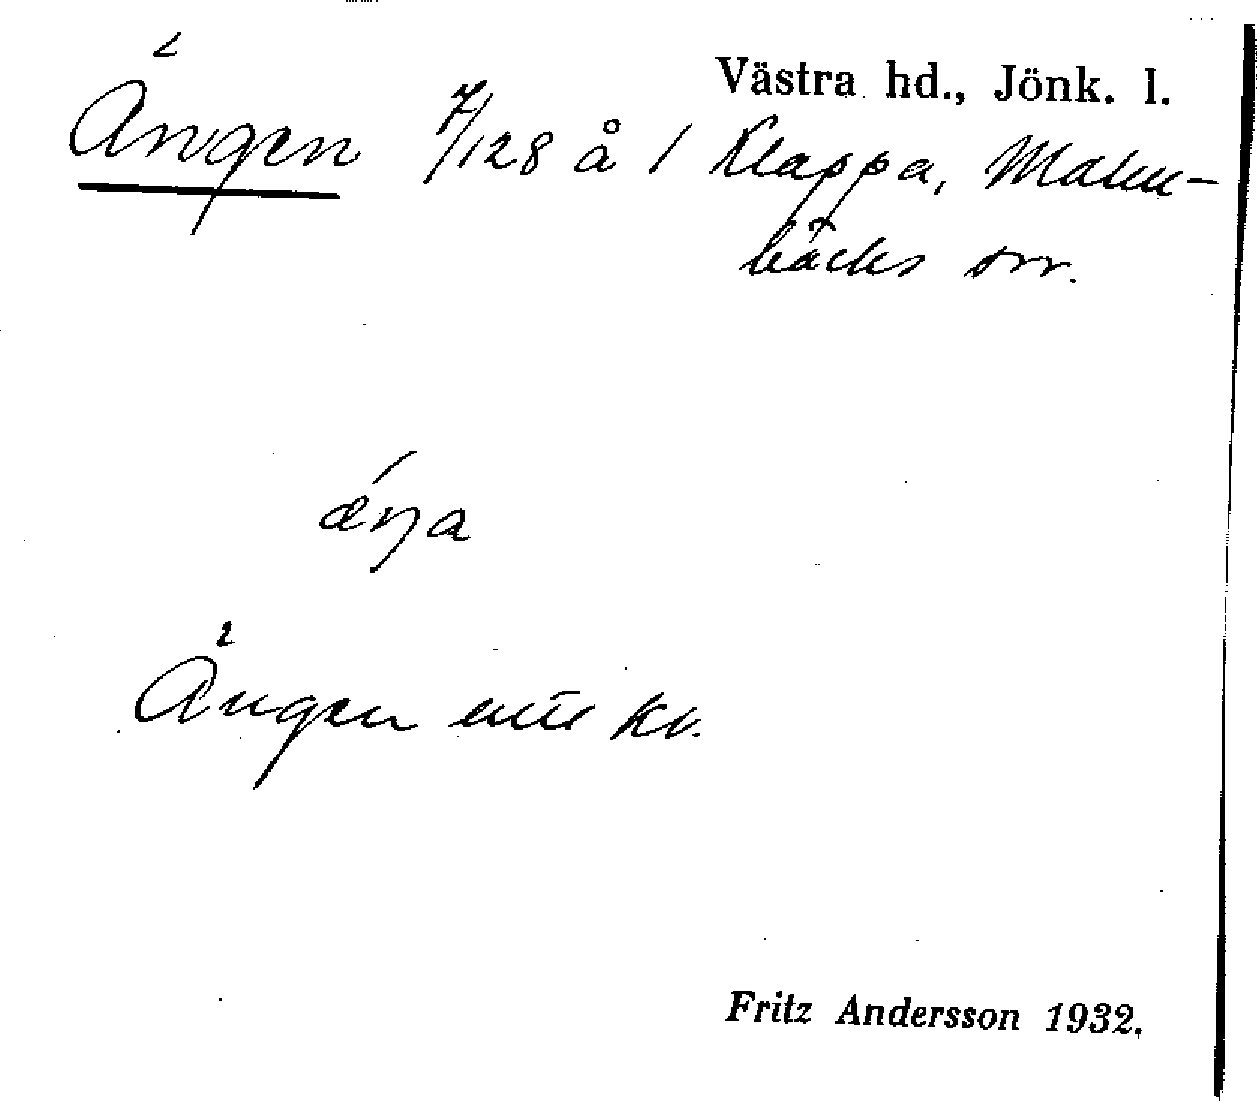 Västra hd., Jönk. l.
Ängen 7/128 å 1 Klappa, Malm-
bäcks sn.
ǽŋa
Ängen enl. kv.
Fritz Andersson 1932.